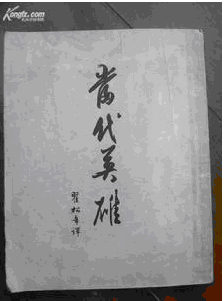 Kongfz.com
當代英雄
翟松年译